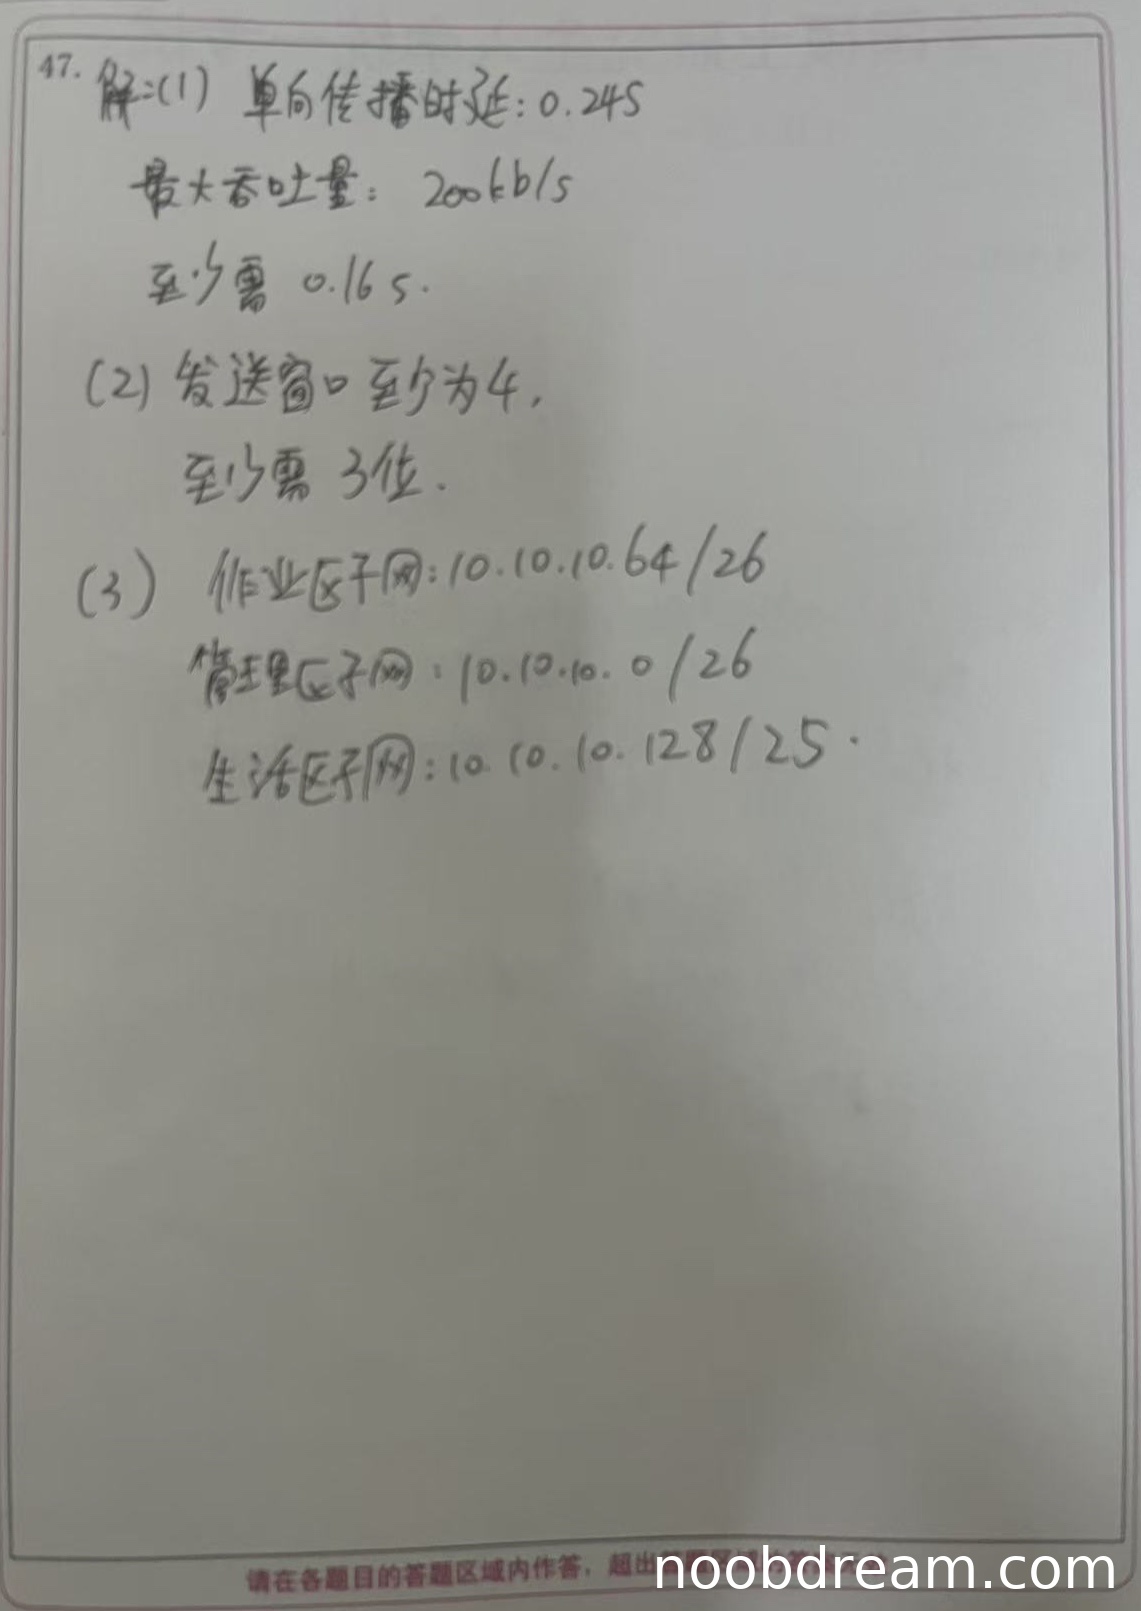 47. 解:(1) 单向传播时延:0.24s
最大吞吐量: 200kb/s
至少需 0.16 s.
(2) 发送窗口至少为4,
至少需 3位.
(3) 作业区子网:10.10.10.64/26
管理区子网:10.10.10.0/26
生活区子网:10.10.10.128/25.
请在各题目的答题区域内作答,超出
noobdream.com